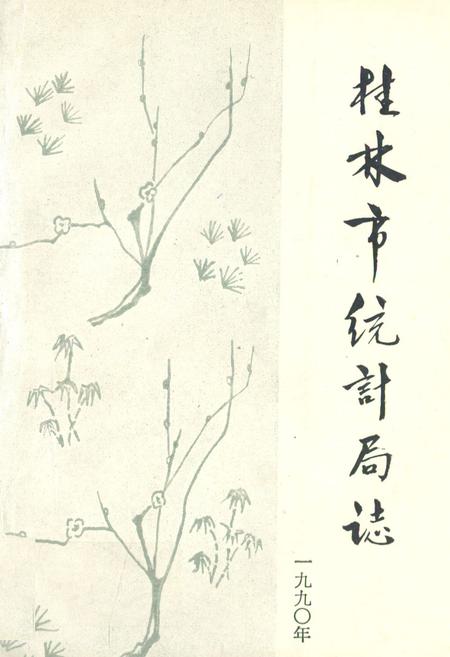 桂林市统計局誌
一九九〇年